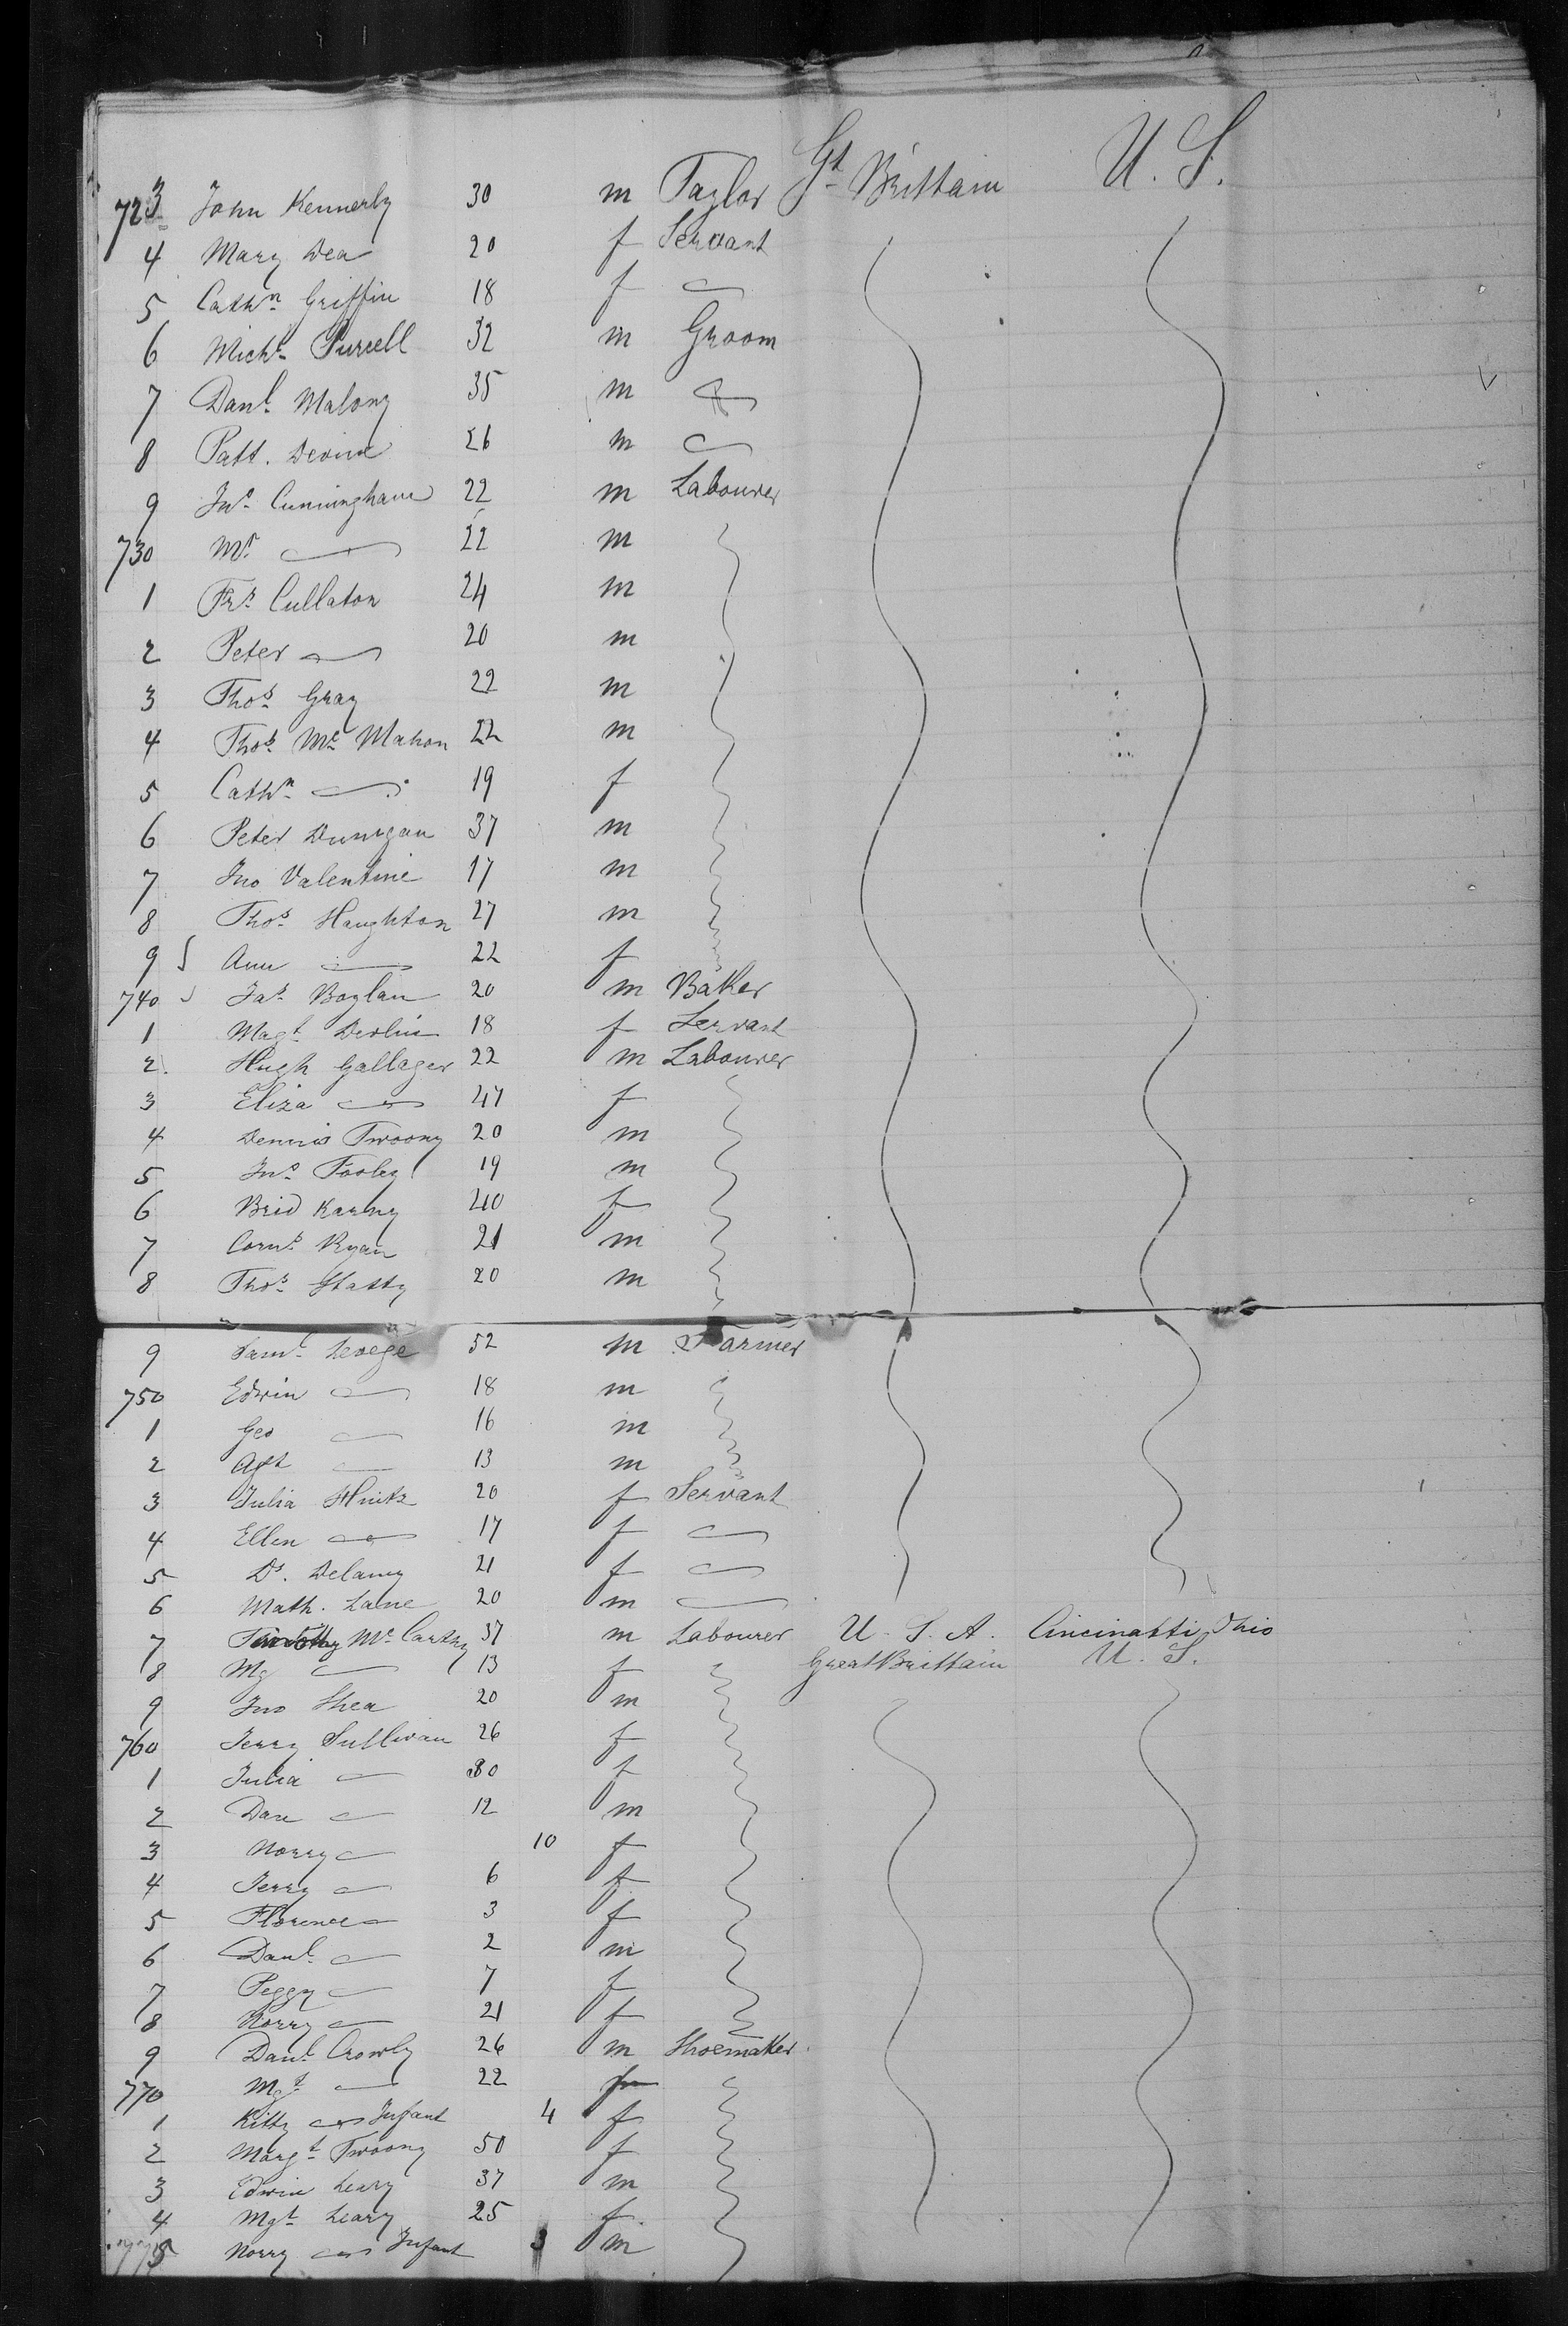 723 John Kennerly 30 m Taylor Gt Brittain U. S.
4 Mary Dea 20 f Servant
5 Cathn Griffin 18 f
6 Michl Purcell 32 m Groom
7 Danl Malony 35 m
8 Patt. Devine 26 m
9 Jno Cunningham 22 m Labourer
730 22 m
1 Frs Cullaton 24 m
2 Peter 20 m
3 Thos Gray 22 m
4 Thos Mc Mahon 22 m
5 Cathn 19 f
6 Peter Dunigan 37 m
7 Jno Valentine 17 m
8 Thos Haughton 27 m
9 Ann 22 f
740 Jas Boylan 20 m Baker
1 Magt Devlin 18 f Servant
2 Hugh Gallager 22 m Labourer
3 Eliza 47 f
4 Dennis Twoony 20 m
5 Jno Tooley 19 m
6 Brid Karny 40 f
7 Corns Ryan 21 m
8 Thos 20 m
9 Saml 52 m Farmer
750 Edwin 18 m
1 Geo 16 m
2 13 m
3 Julia 20 f Servant
4 Ellen 17 f
5 Delany 21 f
6 Math. Lane 20 m
7 Timothy Mc Carthy 37 m Labourer U. S. A. Cincinatti Ohio
8 Mg 13 f Great Brittain U. S.
9 Jno Shea 20 m
760 Jerry Sullivan 26 f
1 Julia 30 f
2 Dan 12 m
3 Norry 10 f
4 Jerry 6 f
5 Florence 3 f
6 Danl 2 m
7 Peggy 7 f
8 Norry 21 f
9 Danl Crowly 26 m Shoemaker
770 Mgt 22
1 Kitty Infant 4 f
2 Margt Twoony 50 f
3 Edwin Leary 37 m
4 Mgt Leary 25 f
775 Norry Infant 3 m